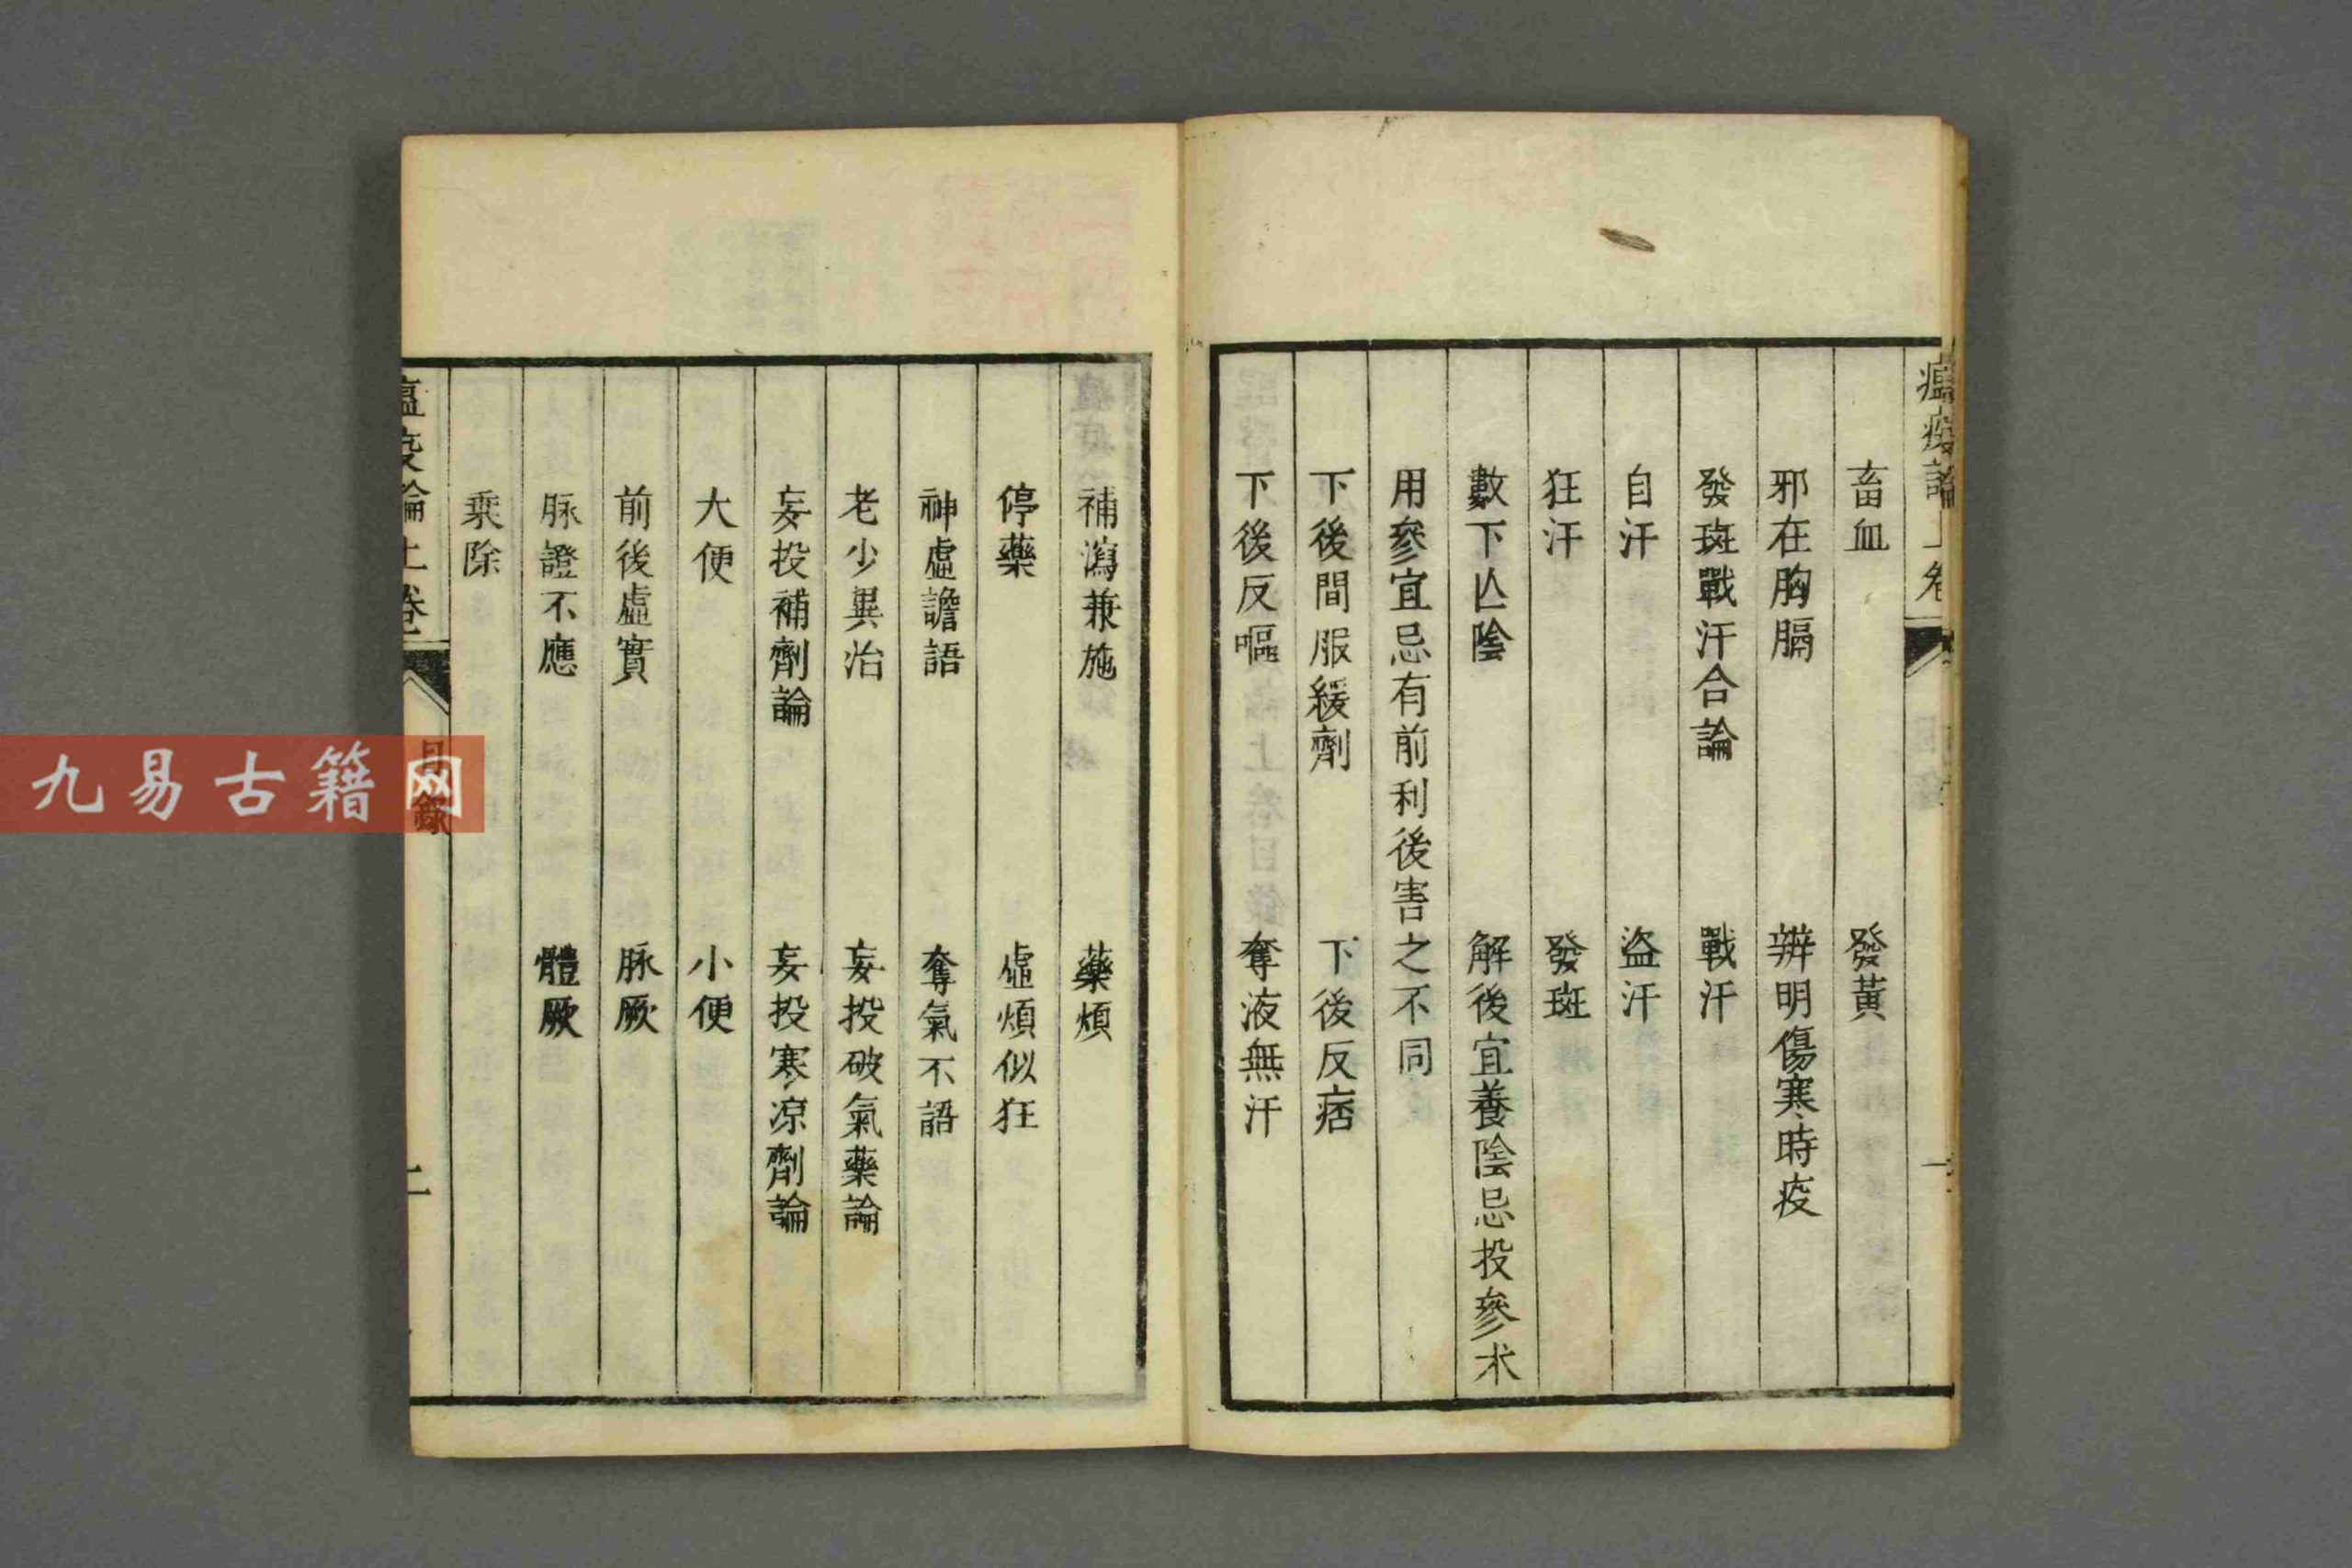 瘟疫論上卷
畜血　發黃
邪在胸膈　辨明傷寒時疫
發斑戰汗合論　戰汗
自汗　盜汗
狂汗　發斑
數下亾陰　解後宜養陰忌投參朮
用參宜忌有前利後害之不同
下後間服緩劑　下後反痞
下後反嘔　奪液無汗
補瀉兼施　藥煩
停藥　虛煩似狂
神虛譫語　奪氣不語
老少異治　妄投破氣藥論
妄投補劑論　妄投寒凉劑論
大便　小便
前後虛實　脉厥
脉證不應　體厥
乘除
瘟疫論上卷　目錄
九易古籍网